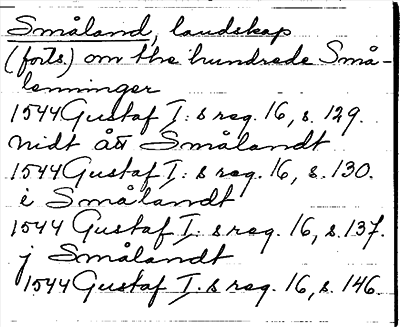 Småland, landskap
(forts.) om the hundrede Små-
lenninger
1544 Gustaf I: s reg. 16, s. 129.
nidt ått Smålandt
1544 Gustaf I: s reg. 16, s. 130.
i Smålandt
1544 Gustaf I: s reg. 16, s. 137.
j Smålandt
1544 Gustaf I: s reg. 16, s. 146.